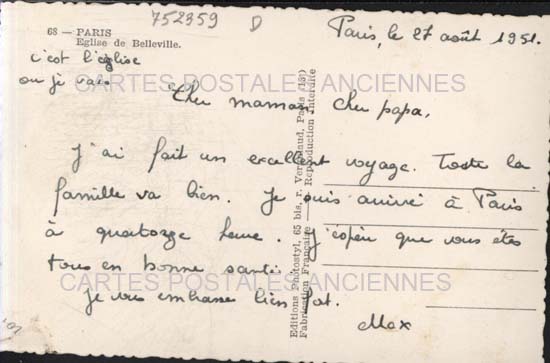 752359 D
68 — PARIS
Eglise de Belleville.
c'est l'église
ou je vais
Paris, le 27 août 1951.
Cher maman cher papa,
J'ai fait un excellent voyage. Toute la
famille va bien. Je suis arrivé à Paris
à quatorze heure. J'éspèr que vous êtes
tous en bonne santé.
Je vous embrasse bien fort.
Max
Editions Photostyl, 65 bis, r. Vergniaud, Paris (13e)
Fabrication Française — Reproduction Interdite
CARTES POSTALES ANCIENNES
CARTES POSTALES ANCIENNES